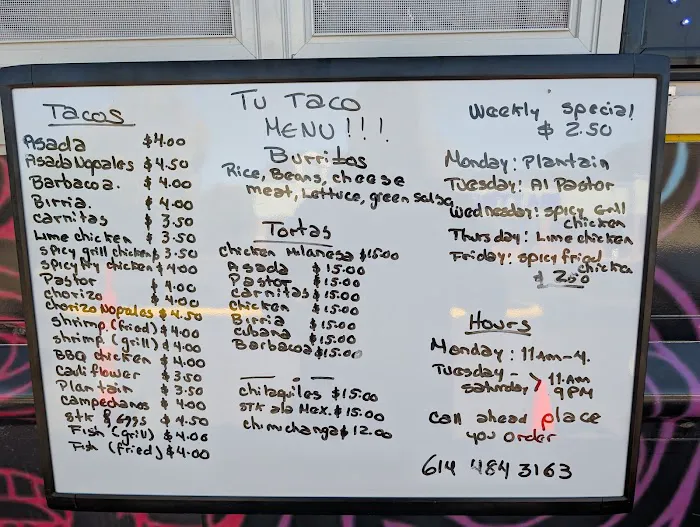 Tacos
Asada $4.00
Asada Nopales $4.50
Barbacoa. $4.00
Birria. $4.00
Carnitas $3.50
Lime chicken $3.50
Spicy grill chicken $3.50
Spicy fry chicken $4.00
Pastor $4.00
chorizo $4.00
chorizo Nopales $4.50
Shrimp (fried) $4.00
Shrimp (grill) $4.00
BBQ chicken $4.00
Cauliflower $3.50
Plantain $3.50
Campechanos $4.00
Stk & eggs $4.50
Fish (grill) $4.00
Fish (fried) $4.00
Tu Taco
MENU!!!
Burritos
Rice, Beans, cheese
meat, Lettuce, green salsa
Tortas
Chicken Milanesa $15.00
Asada $15.00
Pastor $15.00
carnitas $15.00
Chicken $15.00
Birria $15.00
cubana $15.00
Barbacoa $15.00
chilaquiles $15.00
STK ala Mex. $15.00
chimichanga $12.00
Weekly special
$2.50
Monday: Plantain
Tuesday: Al Pastor
Wednesday: spicy Grill
chicken
Thursday: Lime chicken
Friday: spicy fried
chicken
$2.50
Hours
Monday: 11am-4.
Tuesday - 11.am
saturday > 9PM
call ahead place
you order
614 484 3163